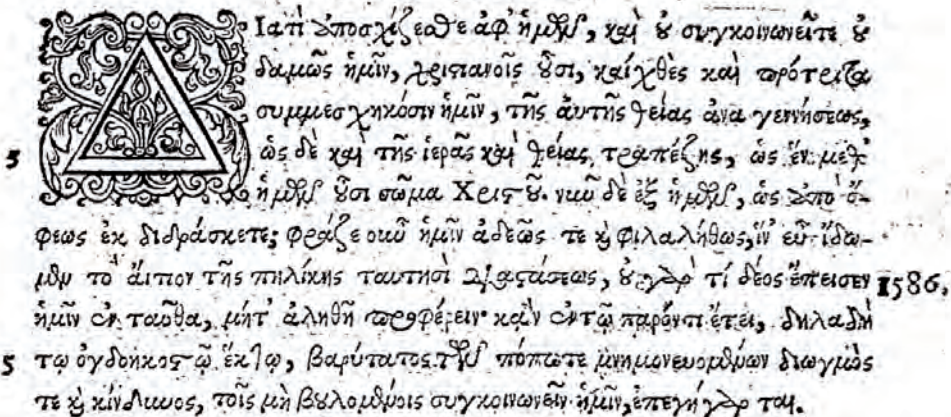 Διατὶ ἀποσχίζεσθε ἀφ' ἡμῶν, καὶ οὐ συγκοινωνεῖτε οὐ
δαμῶς ἡμῖν, χριστιανοῖς οὖσι, καὶ χθὲς καὶ πρότριτα
συμμεσχηκόσιν ἡμῖν, τῆς αὐτῆς θείας ἀνα γεννήσεως,
5 ὡς δὲ καὶ τῆς ἱερᾶς καὶ θείας τραπέζης, ὡς ἓν μεθ'
ἡμῶν οὖσι σῶμα Χριστοῦ. νυνὶ δὲ ἐξ ἡμῶν, ὡς ἀπὸ ὄ-
φεως ἐκ διδράσκετε; φράζε οὖν ἡμῖν ἀδεῶς τε καὶ φιλαλήθως, ἵν' εὖ ἴδω-
μεν τὸ αἴτιον τῆς πηλίκης ταυτησὶ διαστάσεως, οὐ γὰρ τί δέος ἔπεισεν 1586,
ἡμῖν ἐν ταῦθα, μήτ' ἀληθῆ προφέρειν· κἂν ἐν τῷ παρόντι ἔτει, δηλαδὴ
5 τῷ ὀγδοηκοστῷ ἕκτῳ, βαρύτατος τῶν πόπωτε μνημονευομένων διωγμὸς
τε καὶ κίνδυνος, τοῖς μὴ βουλομένοις συγκοινωνεῖν ἡμῖν, ἐπεγήγερται.